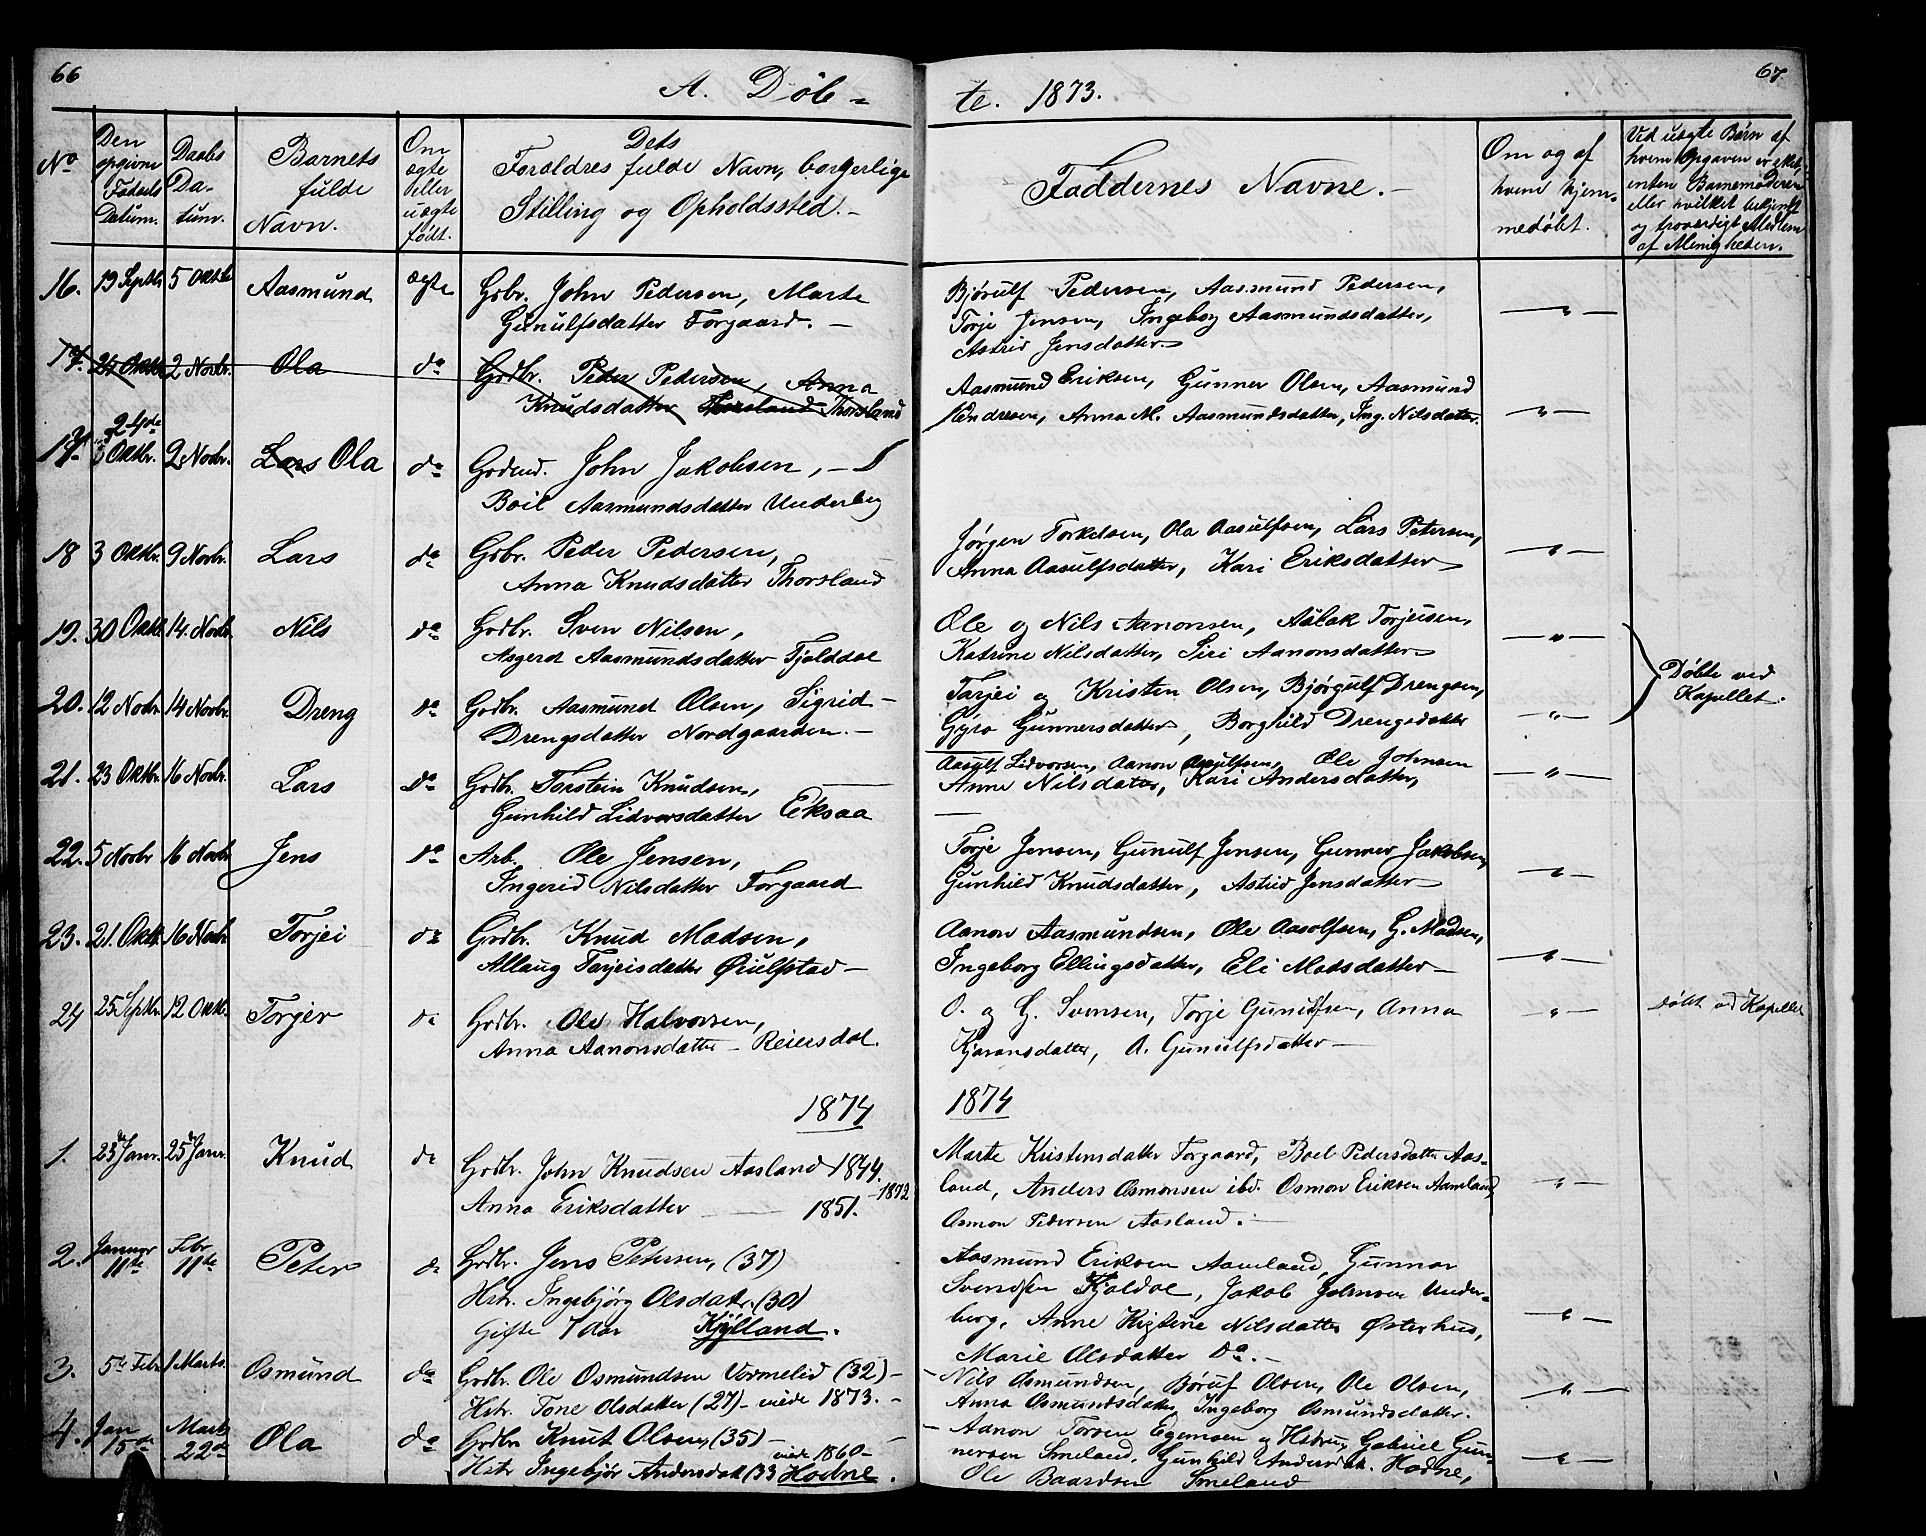 66
A. Døb-
te. 1873.
67.
No
Den opgivne Fødsels Datum.
Daabs Datum.
Barnets fulde Navn.
Om ægte eller uægte født.
Dets Forældres fulde Navn, borgerlige Stilling og Opholdssted.
Faddernes Navne.
Om og af hvem hjemmedøbt.
Ved uægte Børn af hvem Opgaven er skeet, enten Barnemoderen eller hvilket bekjendt og troværdigt Medlem af Menigheden.
16. 19 Septbr 5 Oktbr Aasmund ægte Gdbr. John Pedersen, Marte
Gunulfsdatter Forgaard.
Bjørulf Pedersen, Aasmund Pedersen,
Torje Jensen, Ingeborg Aasmundsdatter,
Astrid Jensdatter
17. 24 Oktbr 2 Novbr. Ola do Grdbr. Peder Pedersen, Anna
Knudsdatter Thorsland Thorsland
Aasmund Eriksen, Gunner Olsen, Aasmund
Kendresen, Anna M. Aasmundsdatter, Ing. Nilsdatter.
17. 24de 3 Oktbr. 2 Novbr. Lars Ola do Grdmd. John Jakobsen,
Boil Aasmundsdatter Underberg
18 3 Oktbr. 9 Novbr. Lars do Gdbr. Peder Pedersen,
Anna Knudsdatter Thorsland
Jørgen Torkelsen, Ola Aasulfsen, Lars Petersen,
Anna Aasulfsdatter, Kari Eriksdatter
19. 30 Oktbr 14. Novbr. Nils do Grdbr. Sven Nilsen,
Asgerd Aasmundsdatter Fjalddal
Ole og Nils Aanonsen, Aslak Torjeisen,
Katrine Nilsdatter, Siri Aanonsdatter
Døbte ved
Kapellet.
20. 12 Novbr 14 Novbr. Dreng do Grdbr. Aasmund Olsen, Sigrid
Drengsdatter Nordgaarden.
Tarjei og Kristen Olsen, Bjørgulf Drengsen,
Gyro Gunnersdatter, Borghild Drengsdatter
21. 23 Oktbr. 16 Novbr. Lars do Grdbr. Torstein Knudsen,
Gunhild Lidvorsdatter Eksaa
Aasulf Lidvorsen, Aanon Aasulfsen, Ole Johnsen
Anne Nilsdatter, Kari Andersdatter,
22. 5 Novbr 16 Novbr Jens do Arb. Ole Jensen,
Ingerid Nilsdatter Forgaard
Torje Jensen, Gunulf Jensen, Gunner Jakobsen,
Gunhild Knudsdatter, Astrid Jensdatter
23. 21. Oktbr. 16 Novbr Torjei do Grdbr. Knud Madsen,
Allaug Tarjeisdatter Øiulfstad
Aanon Aasmundsen, Ole Aasolfsen, G. Madsen,
Ingeborg Ellingsdatter, Eli Matsdatter
24 25 Septbr. 12 Oktbr. Torjer do Grdbr. Ole Halvorsen,
Anna Aanonsdatter Reiersdal.
O. og G. Svensen, Torje Gunulfsen, Anna
Kjøransdatter, A. Gunulfsdatter
døbt ved Kapellet
1874
1874
1. 23de Janr. 25de Janr. Knud do Grdbr. John Knudsen Aasland 1844.
Anna Eriksdatter 1851. 1872
Marte Kristensdatter Forgaard, Boel Pedersdatter Aas-
land, Anders Osmonsen ibd. Osmon Eriksen Aamland
Osmon Pedersen Aasland.
2. Januar 11te Febr 11te Peter do Grdbr. Jens Petersen, (37)
Hstr. Ingebjørg Olsdatr. (30)
Gifte 7 Aar Kjylland.
Aasmund Eriksen Aamland, Gunnar
Svendsen Kjoldal, Jakob Johnsen Under-
berg, Anne Kistine Nilsdatter Østerhus,
Marie Olsdatter Do.
3. 5te Febr 1 Marts. Osmund do Grdbr. Ole Osmundsen Vormelid (32)
Hstr. Tone Olsdatter (27) viede 1873.
Nils Osmundsen, Børuf Olsen, Ole Olsen,
Anna Osmundsdatter, Ingeborg Osmundsdatter.
4. Jan 15de Marts 22de Ola do Grdbr Knut Olsen, (35)
viede 1860
Hstr Ingebjør Andersdatt (33 Hodne.
Aanon Torsen Egemoen og Hustru, Gabriel Gun-
nersen Smeland, Gunhild Andersdtr. Hodne,
Ole Baardsen Smeland